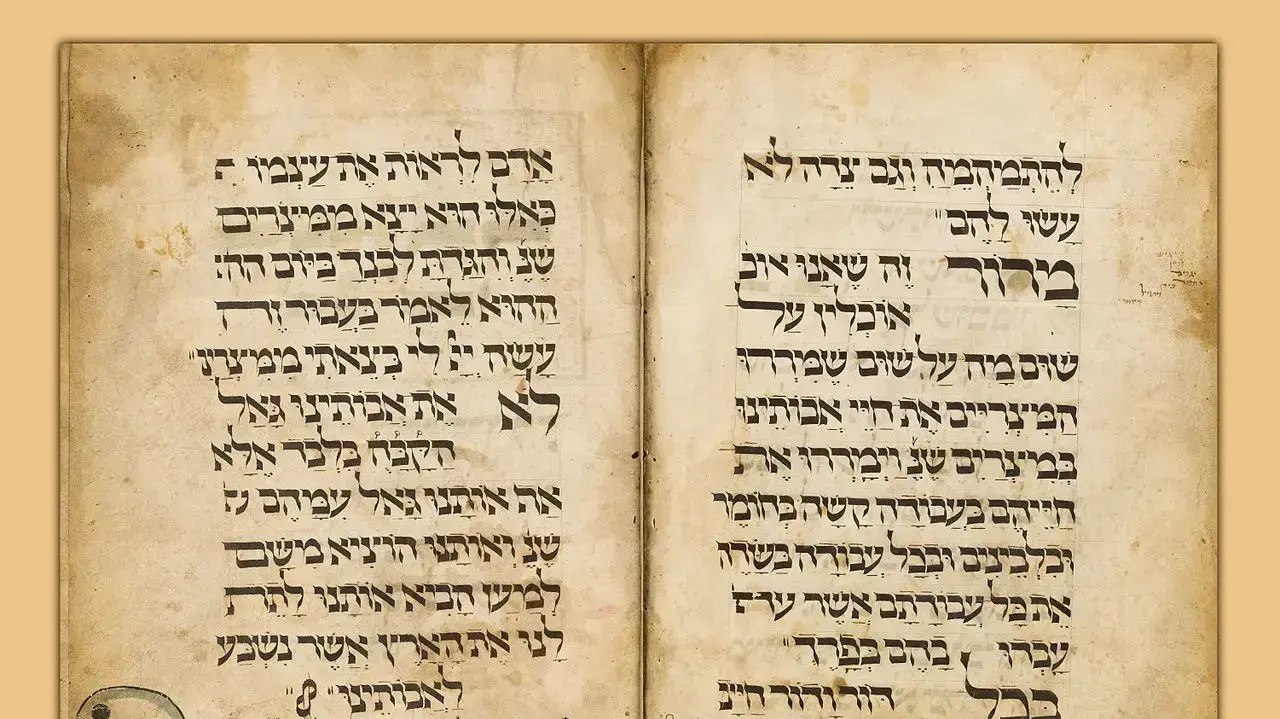 להתמהמה וגם צדה לא
עשו להם"
מרור זה שאנו אוכ
אוכלין על
שום מה על שום שמררו
המצריים את חיי אבותינו
במצרים שנ' וימררו את
חייהם בעבודה קשה בחומר
ובלבינים ובכל עבודה בשדה
את כל עבודתם אשר
עבדו בהם בפרך"
בכל דור ודור חייב
אדם לראות את עצמו
כאלו הוא יצא ממצרים
שנ' והגדת לבנך ביום הה
ההוא לאמר בעבור זה
עשה ייי לי בצאתי ממצרי"
לא את אבותינו גאל
הקבה בלבד אלא
את אותנו גאל עמהם
שנ' ואותנו הוציא משם
למען הביא אותנו לתת
לנו את הארץ אשר נשבע
לאבותינו"